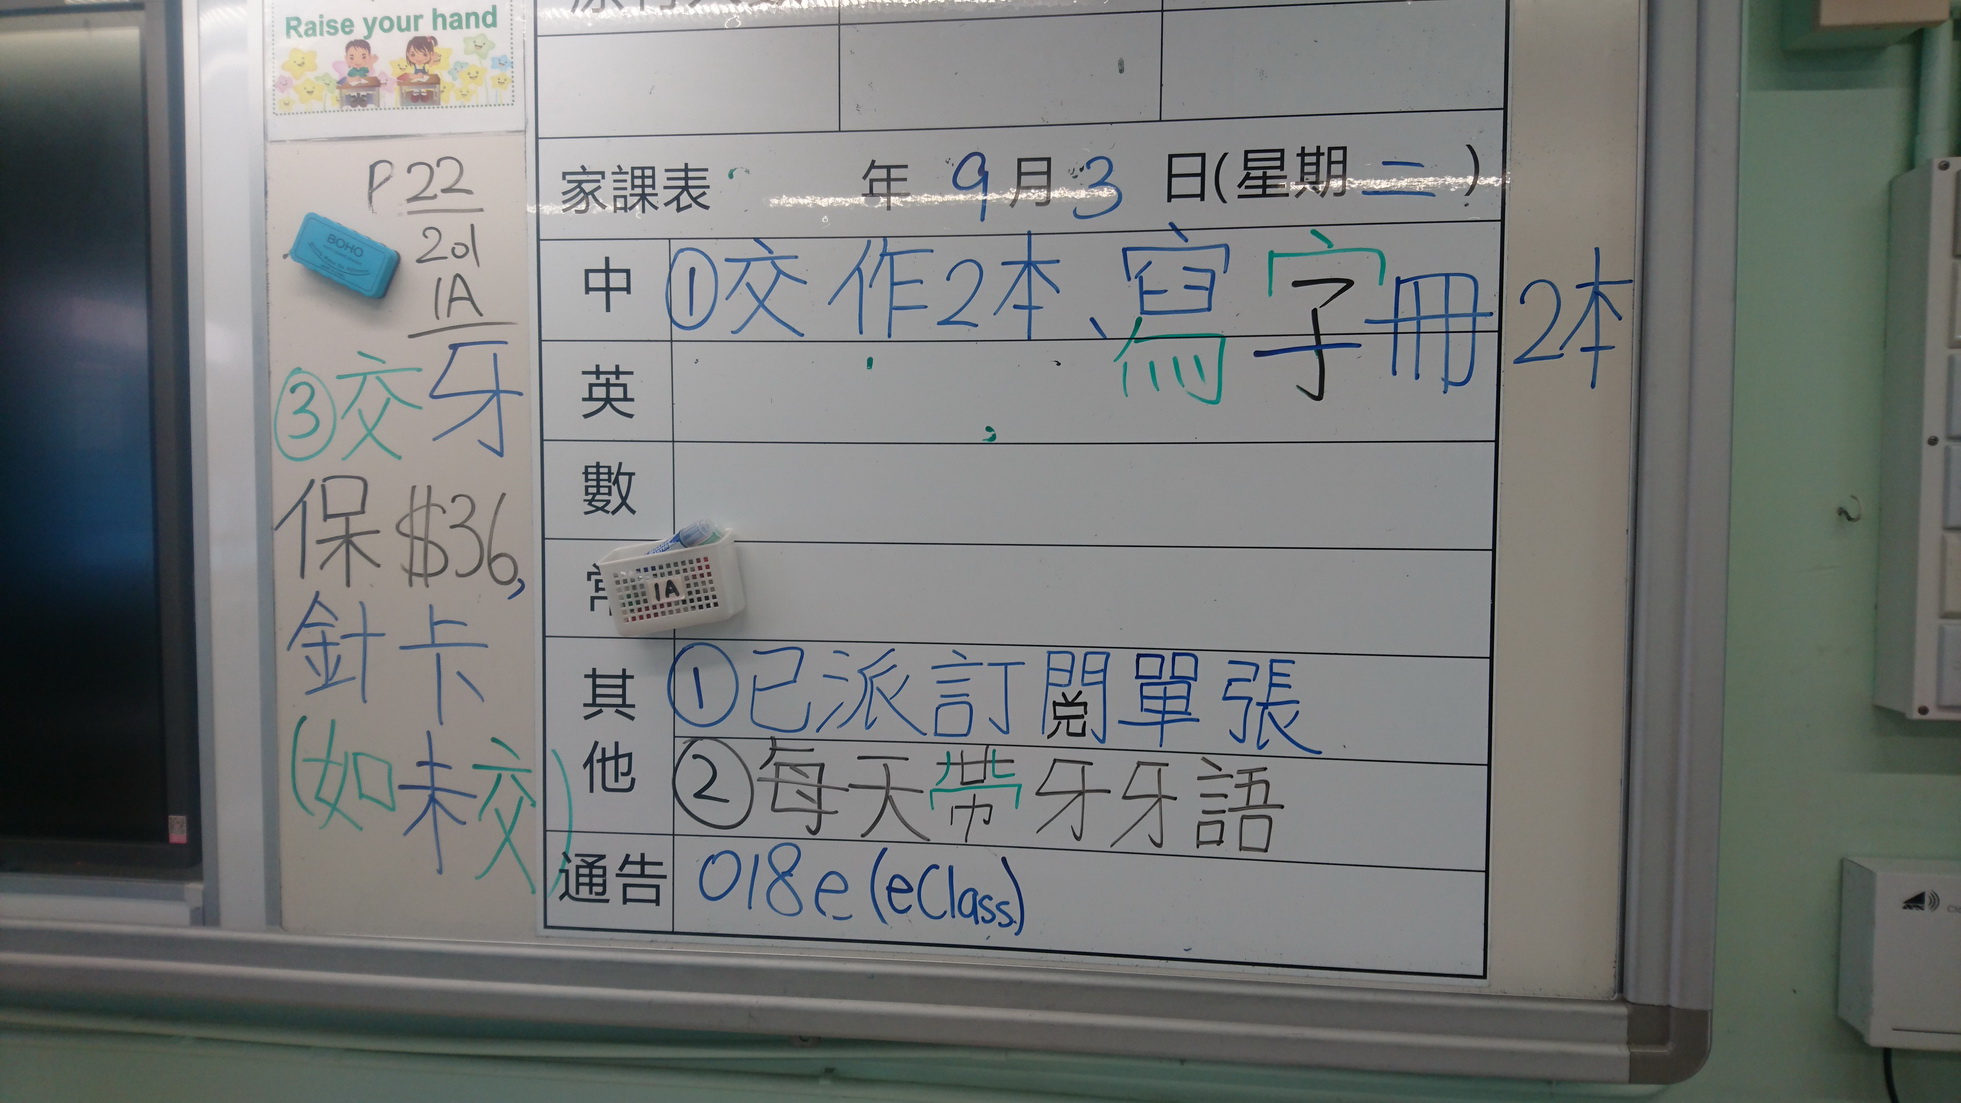 Raise your hand
P 22
201
1A
BOHO
③交牙
保$36,
針卡
(如未交)
家課表 年 9月3 日(星期二)
中 ①交作2本、寫字冊2本
英
數
常
1A
其他 ①已派訂閱單張
②每天帶牙牙語
通告 018e (eClass)